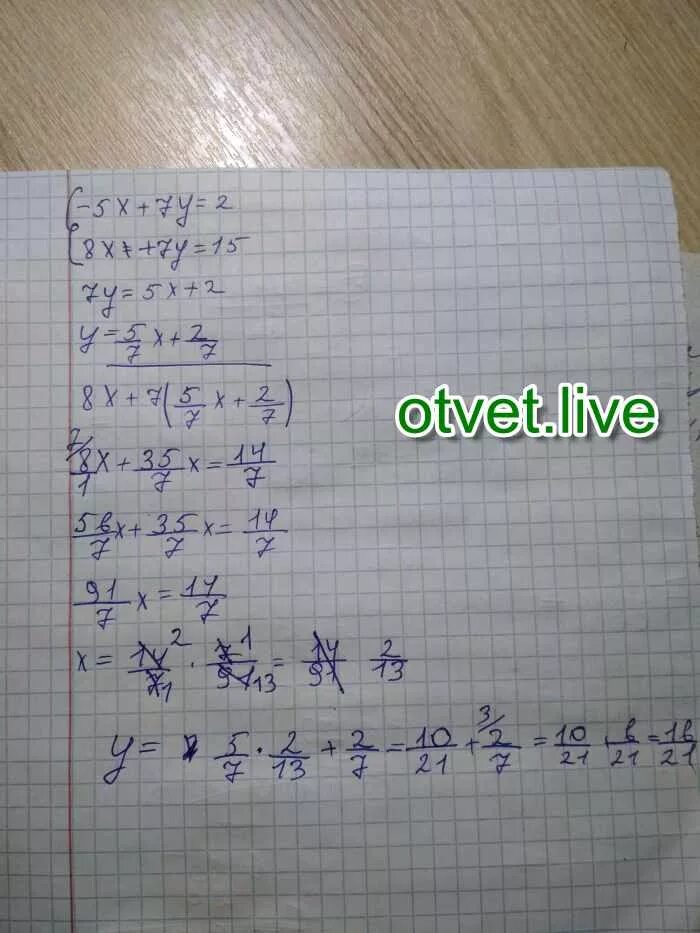 {-5x+7y=2
{8x+7y=15
7y=5x+2
y=5/7 x+2/7
8x+7(5/7 x+2/7)
7/ 8/1 x+35/7 x=14/7
56/7 x+35/7 x=14/7
91/7 x=14/7
x=14/7 2 1 · 7/91 1 13 = 14/91 2/13
y= 5/7 · 2/13 + 2/7 = 10/21 + 3/ 2/7 = 10/21 6/21 = 16/21
otvet.live